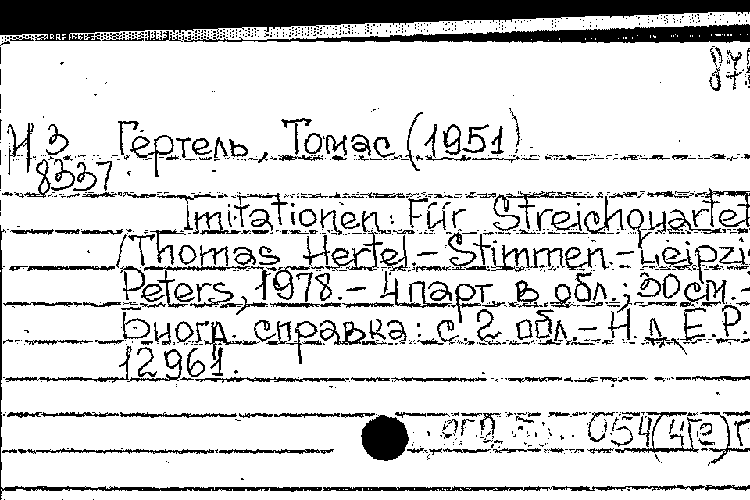 878
И 3 Гертель, Томас (1951)
8337
Imitationen: Für Streichquartet
/Thomas Hertel.- Stimmen.- Leipzi
Peters, 1978.- 4 парт в обл.; 30 см.-
Биогр. справка: с. 2 обл.- Н. д. E.P.
12961.
054(4Ге)Г